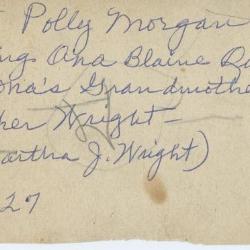 Polly Morgan
Ona Blaine
Ona's Grandmothe
her Wright -
artha J. Wright)
27